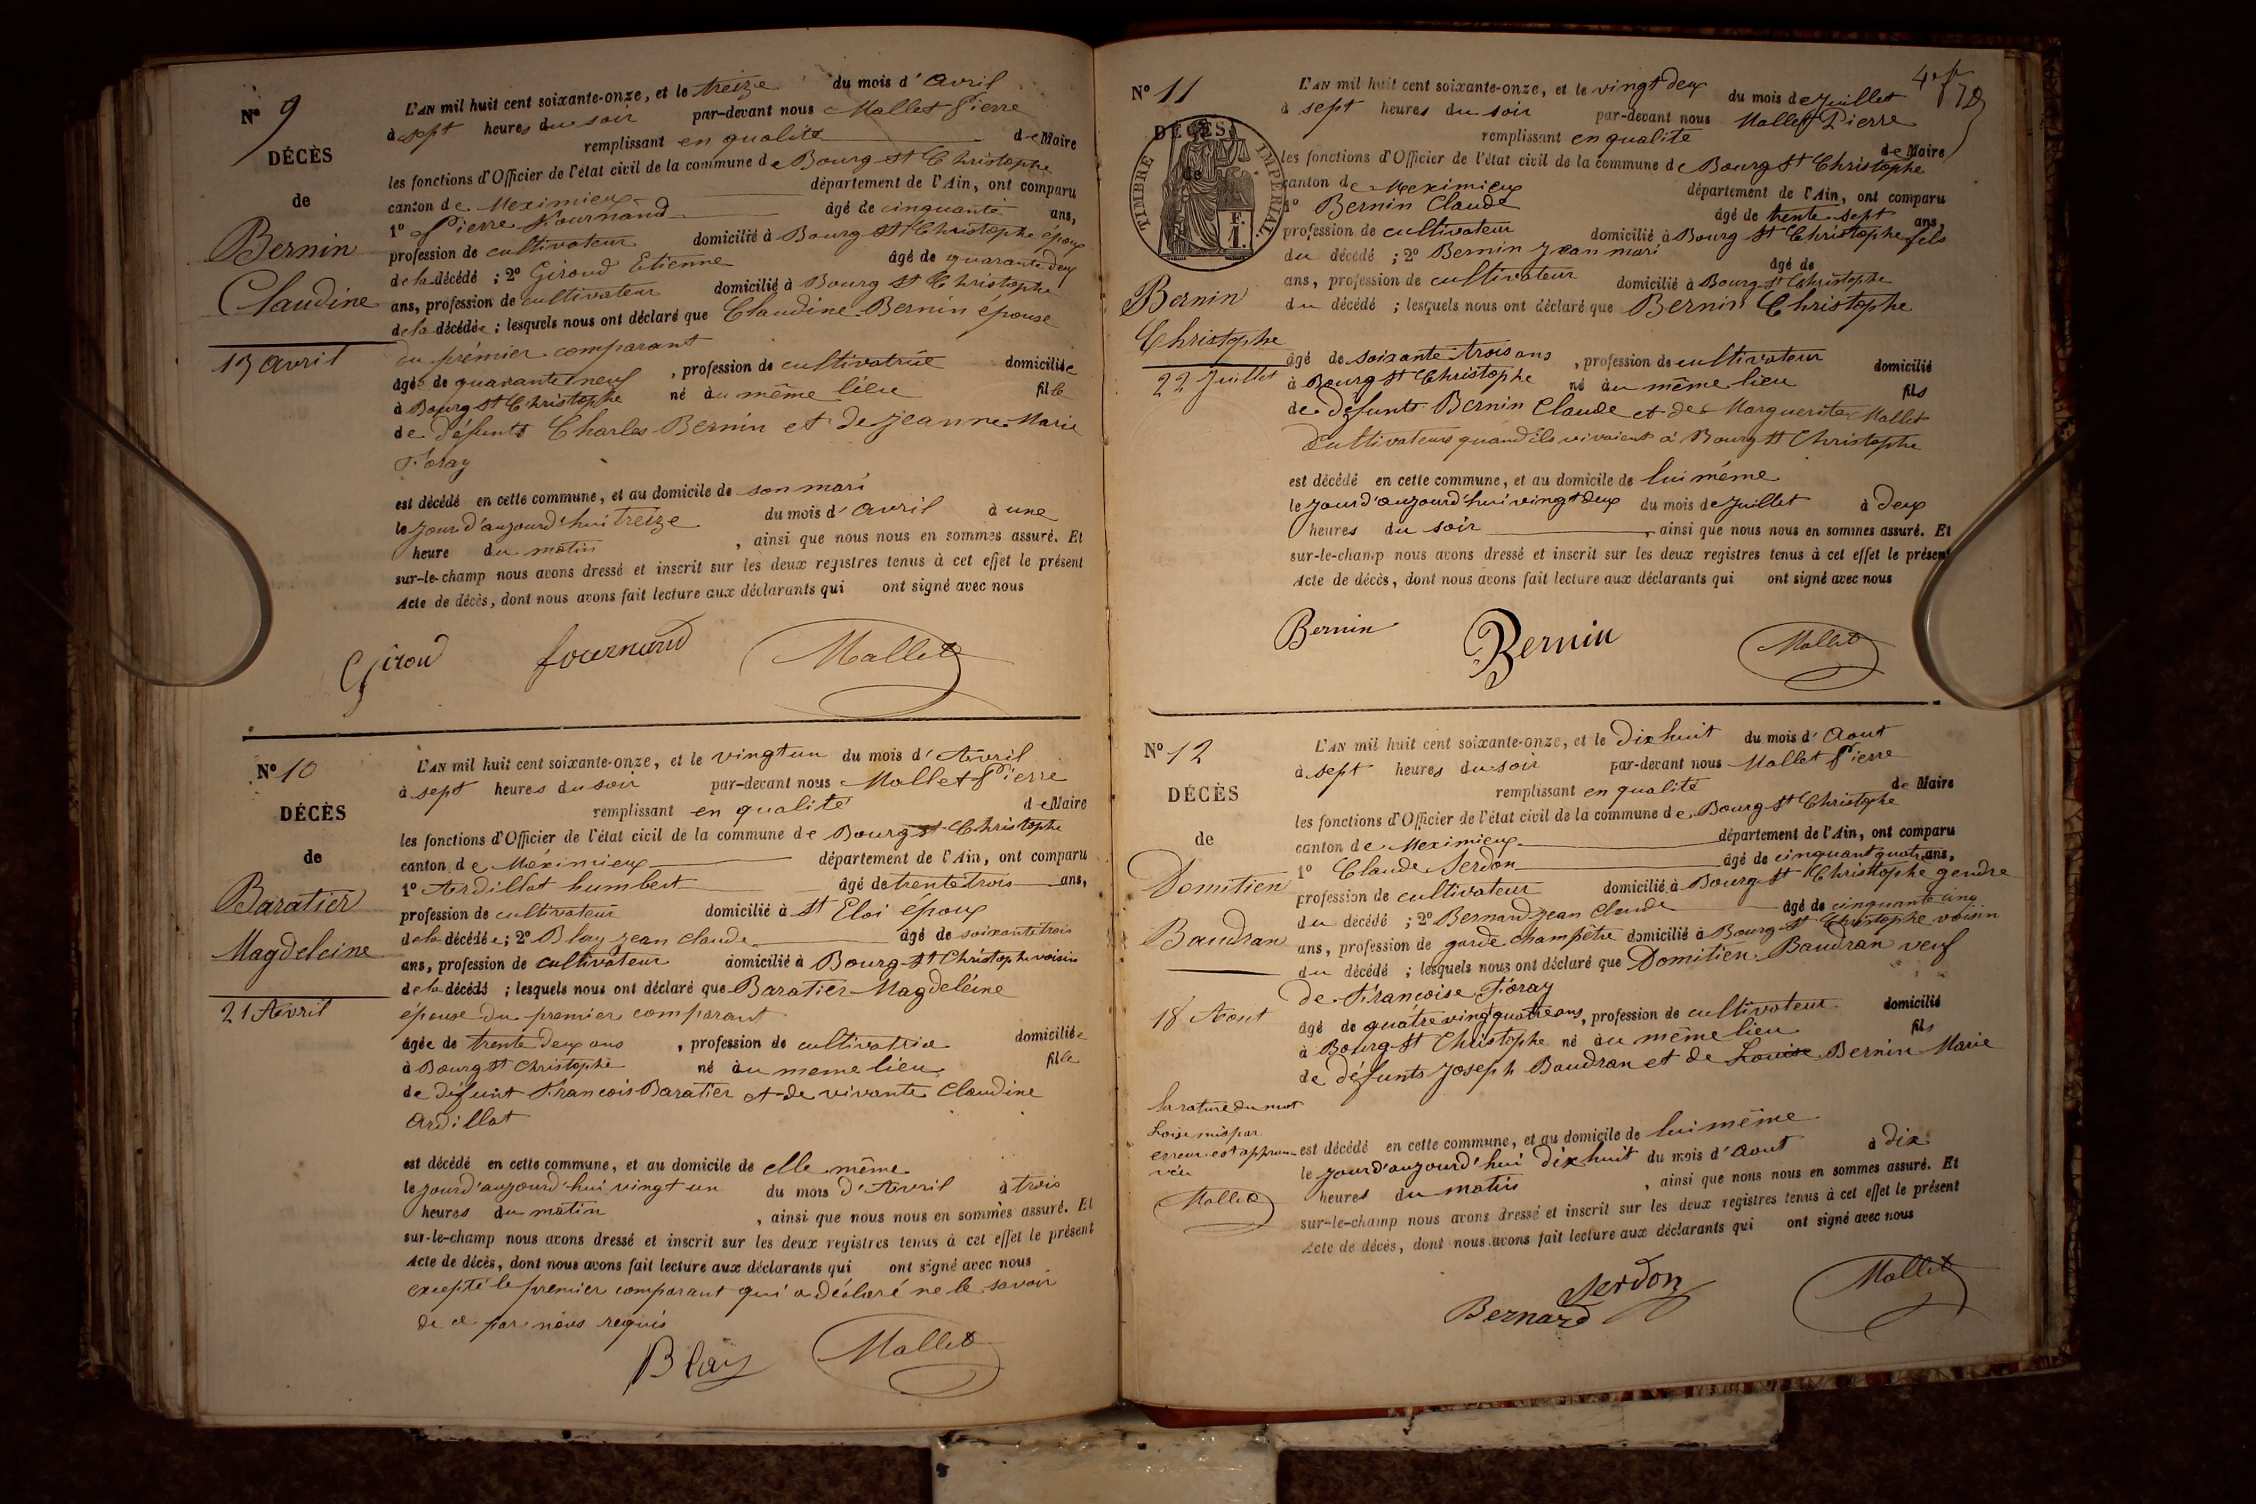 N° 9
DÉCÈS
de
Bernin
Claudine
13 avril
L'AN mil huit cent soixante-onze, et le treize du mois d'avril
à sept heures du soir par-devant nous Mallet Pierre
remplissant en qualité de Maire
les fonctions d'Officier de l'état civil de la commune de Bourg St Christophe
canton de Meximieux département de l'Ain, ont comparu
1° Pierre Fournand âgé de cinquante ans,
profession de cultivateur domicilié à Bourg St Christophe époux
de la décédé ; 2° Giroud Etienne âgé de quarante deux
ans, profession de cultivateur domicilié à Bourg St Christophe
de la décédée ; lesquels nous ont déclaré que Claudine Bernin épouse
du prémier comparant
âgé de quarante neuf , profession de cultivatrice domiciliée
à Bourg St Christophe né àu même lieu fille
de défunts Charles Bernin et de jeanne Marie
Foray
est décédé en cette commune, et au domicile de son mari
le jour d'aujourd'hui treize du mois d'avril à une
heure du matin , ainsi que nous nous en sommes assuré. Et
sur-le-champ nous avons dressé et inscrit sur les deux registres tenus à cet effet le présent
Acte de décès, dont nous avons fait lecture aux déclarants qui ont signé avec nous
Giroud fournand Mallet
N° 10
DÉCÈS
de
Baratier
Magdeleine
21 Avril
L'AN mil huit cent soixante-onze, et le vingt un du mois d'Avril
à sept heures du soir par-devant nous Mollet Pierre
remplissant en qualité de Maire
les fonctions d'Officier de l'état civil de la commune de Bourg St Christophe
canton de Méximieux département de l'Ain, ont comparu
1° Ardillat humbert âgé de trente trois ans,
profession de cultivateur domicilié à St Eloi époux
de la décédée ; 2° Blay jean claude âgé de soixante trois
ans, profession de cultivateur domicilié à Bourg St Christophe voisin
de la décédé ; lesquels nous ont déclaré que Baratier Magdeléine
épouse du premier comparant
âgée de trente deux ans , profession de cultivatrice domiciliée
à Bourg St Christophe né àu meme lieu fille
de défunt Francois Baratier et de vivante Claudine
Ardillat
est décédé en cette commune, et au domicile de elle même
le jour d'aujourd'hui vingt un du mois d'Avril à trois
heures du matin , ainsi que nous nous en sommes assuré. Et
sur-le-champ nous avons dressé et inscrit sur les deux registres tenus à cet effet le présent
Acte de décès, dont nous avons fait lecture aux déclarants qui ont signé avec nous
excepté le premier comparant qui a déclaré ne le savoir
de ce par nous requis
Blay Mallet
N° 11
DÉCÈS
de
TIMBRE IMPERIAL
F.
1.
Bernin
Christophe
22 Juillet
L'AN mil huit cent soixante-onze, et le vingt deux du mois de juillet
à sept heures du soir par-devant nous Mallet Pierre
remplissant en qualité de Maire
les fonctions d'Officier de l'état civil de la commune de Bourg St Christophe
canton de Meximieux département de l'Ain, ont comparu
1° Bernin Claude âgé de trente sept ans,
profession de cultivateur domicilié à Bourg St Christophe fils
du décédé ; 2° Bernin jean mari âgé de
ans, profession de cultivateur domicilié à Bourg St Christophe
du décédé ; lesquels nous ont déclaré que Bernin Christophe
âgé de soixante trois ans , profession de cultivateur domicilié
à Bourg St Christophe né àu même lieu fils
de défunts Bernin Claude et de Marguerite Mallet
cultivateurs quand ils vivaient à Bourg St Christophe
est décédé en cette commune, et au domicile de lui même
le jour d'aujourd'hui vingt deux du mois de juillet à deux
heures du soir , ainsi que nous nous en sommes assuré. Et
sur-le-champ nous avons dressé et inscrit sur les deux registres tenus à cet effet le présent
Acte de décès, dont nous avons fait lecture aux déclarants qui ont signé avec nous
Bernin Bernin Mallet
N° 12
DÉCÈS
de
Domitien
Baudran
18 Aout
L'AN mil huit cent soixante-onze, et le Dix huit du mois d'Aout
à sept heures du soir par-devant nous Mallet Pierre
remplissant en qualité de Maire
les fonctions d'Officier de l'état civil de la commune de Bourg St Christophe
canton de Meximieux département de l'Ain, ont comparu
1° Claude Serdon âgé de cinquant quatre ans,
profession de cultivateur domicilié à Bourg St Christophe gendre
du décédé ; 2° Bernard jean Claude âgé de cinquante cinq
ans, profession de garde champêtre domicilié à Bourg St Christophe voisin
du décédé ; lesquels nous ont déclaré que Domitien Baudran veuf
de Françoise Foray
âgé de quatre vingt quatre ans, profession de cultivateur domicilié
à Bourg St Christophe né àu même lieu fils
de défunts Joseph Baudran et de Louise Bernin Marie
est décédé en cette commune, et au domicile de lui même
le jour d'aujourd'hui dix huit du mois d'aout à dix
heures du matin , ainsi que nous nous en sommes assuré. Et
sur-le-champ nous avons dressé et inscrit sur les deux registres tenus à cet effet le présent
Acte de décès, dont nous avons fait lecture aux déclarants qui ont signé avec nous
la rature du mot
Loise mis par
erreur est approu-
vée
Mallet
Serdon
Bernard Mallet